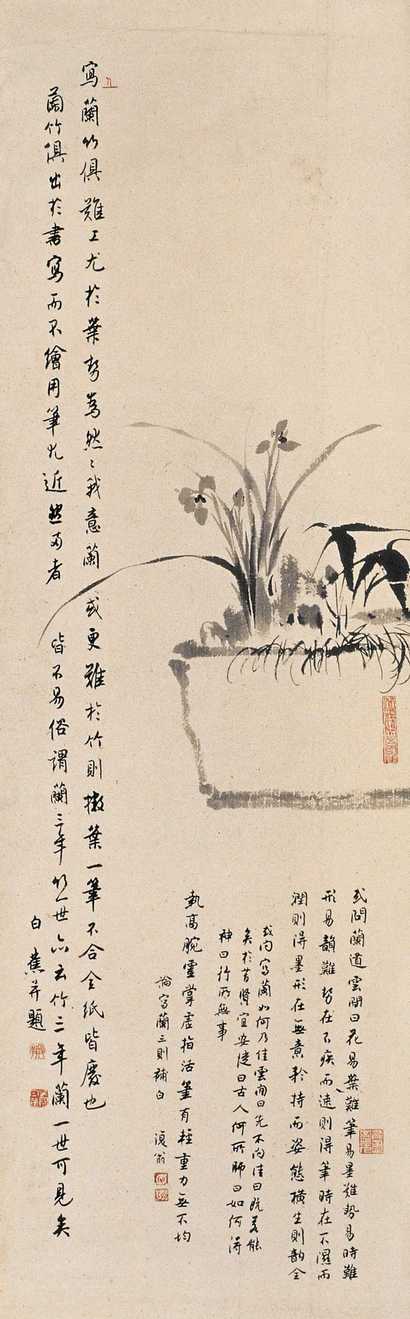 寫蘭竹俱難工尤於葉勢為然々我意蘭或更難於竹則撇葉一筆不合全紙皆廢也
蘭竹俱出於書寫而不繪用筆尤近然兩者皆不易俗謂蘭三年竹一世亦云竹三年蘭一世可見矣
白蕉并題
或問蘭道雲間曰花易葉難筆易墨難勢易時難
形易韻難勢在不疾而速則得筆時在不濕而
潤則得墨形在無意矜持而姿態橫生則韻全
或問寫蘭如何乃佳雲間曰先不問佳曰既若能
矣於昔賢宜安從曰古人何所師曰如何得
神曰行所無事
執高腕靈掌虛指活筆有輕重力無不均
論寫蘭三則補白 復翁